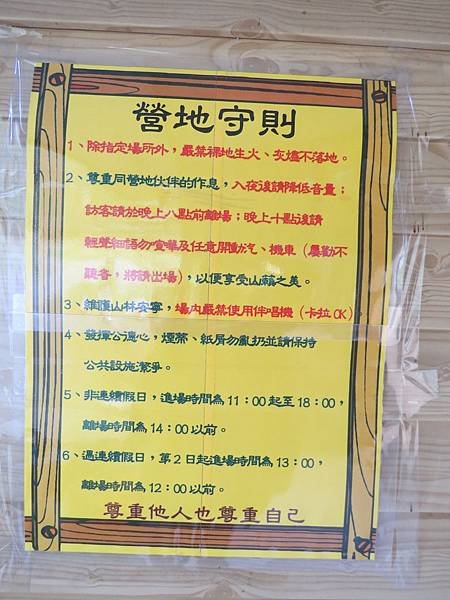 營地守則
1、除指定場所外，嚴禁裸地生火、灰燼不落地。
2、尊重同營地伙伴的作息，入夜後請降低音量；
訪客請於晚上八點前離場；晚上十點後請
輕聲細語勿喧嘩及任意開動汽、機車（屢勸不
聽者，將請出場），以便享受山麓之美。
3、維護山林安寧，場內嚴禁使用伴唱機（卡拉OK）。
4、發揮公德心，煙蒂、紙屑勿亂扔並請保持
公共設施潔淨。
5、非連續假日，進場時間為11：00起至18：00，
離場時間為14：00以前。
6、遇連續假日，第2日起進場時間為13：00，
離場時間為12：00以前。
尊重他人也尊重自己